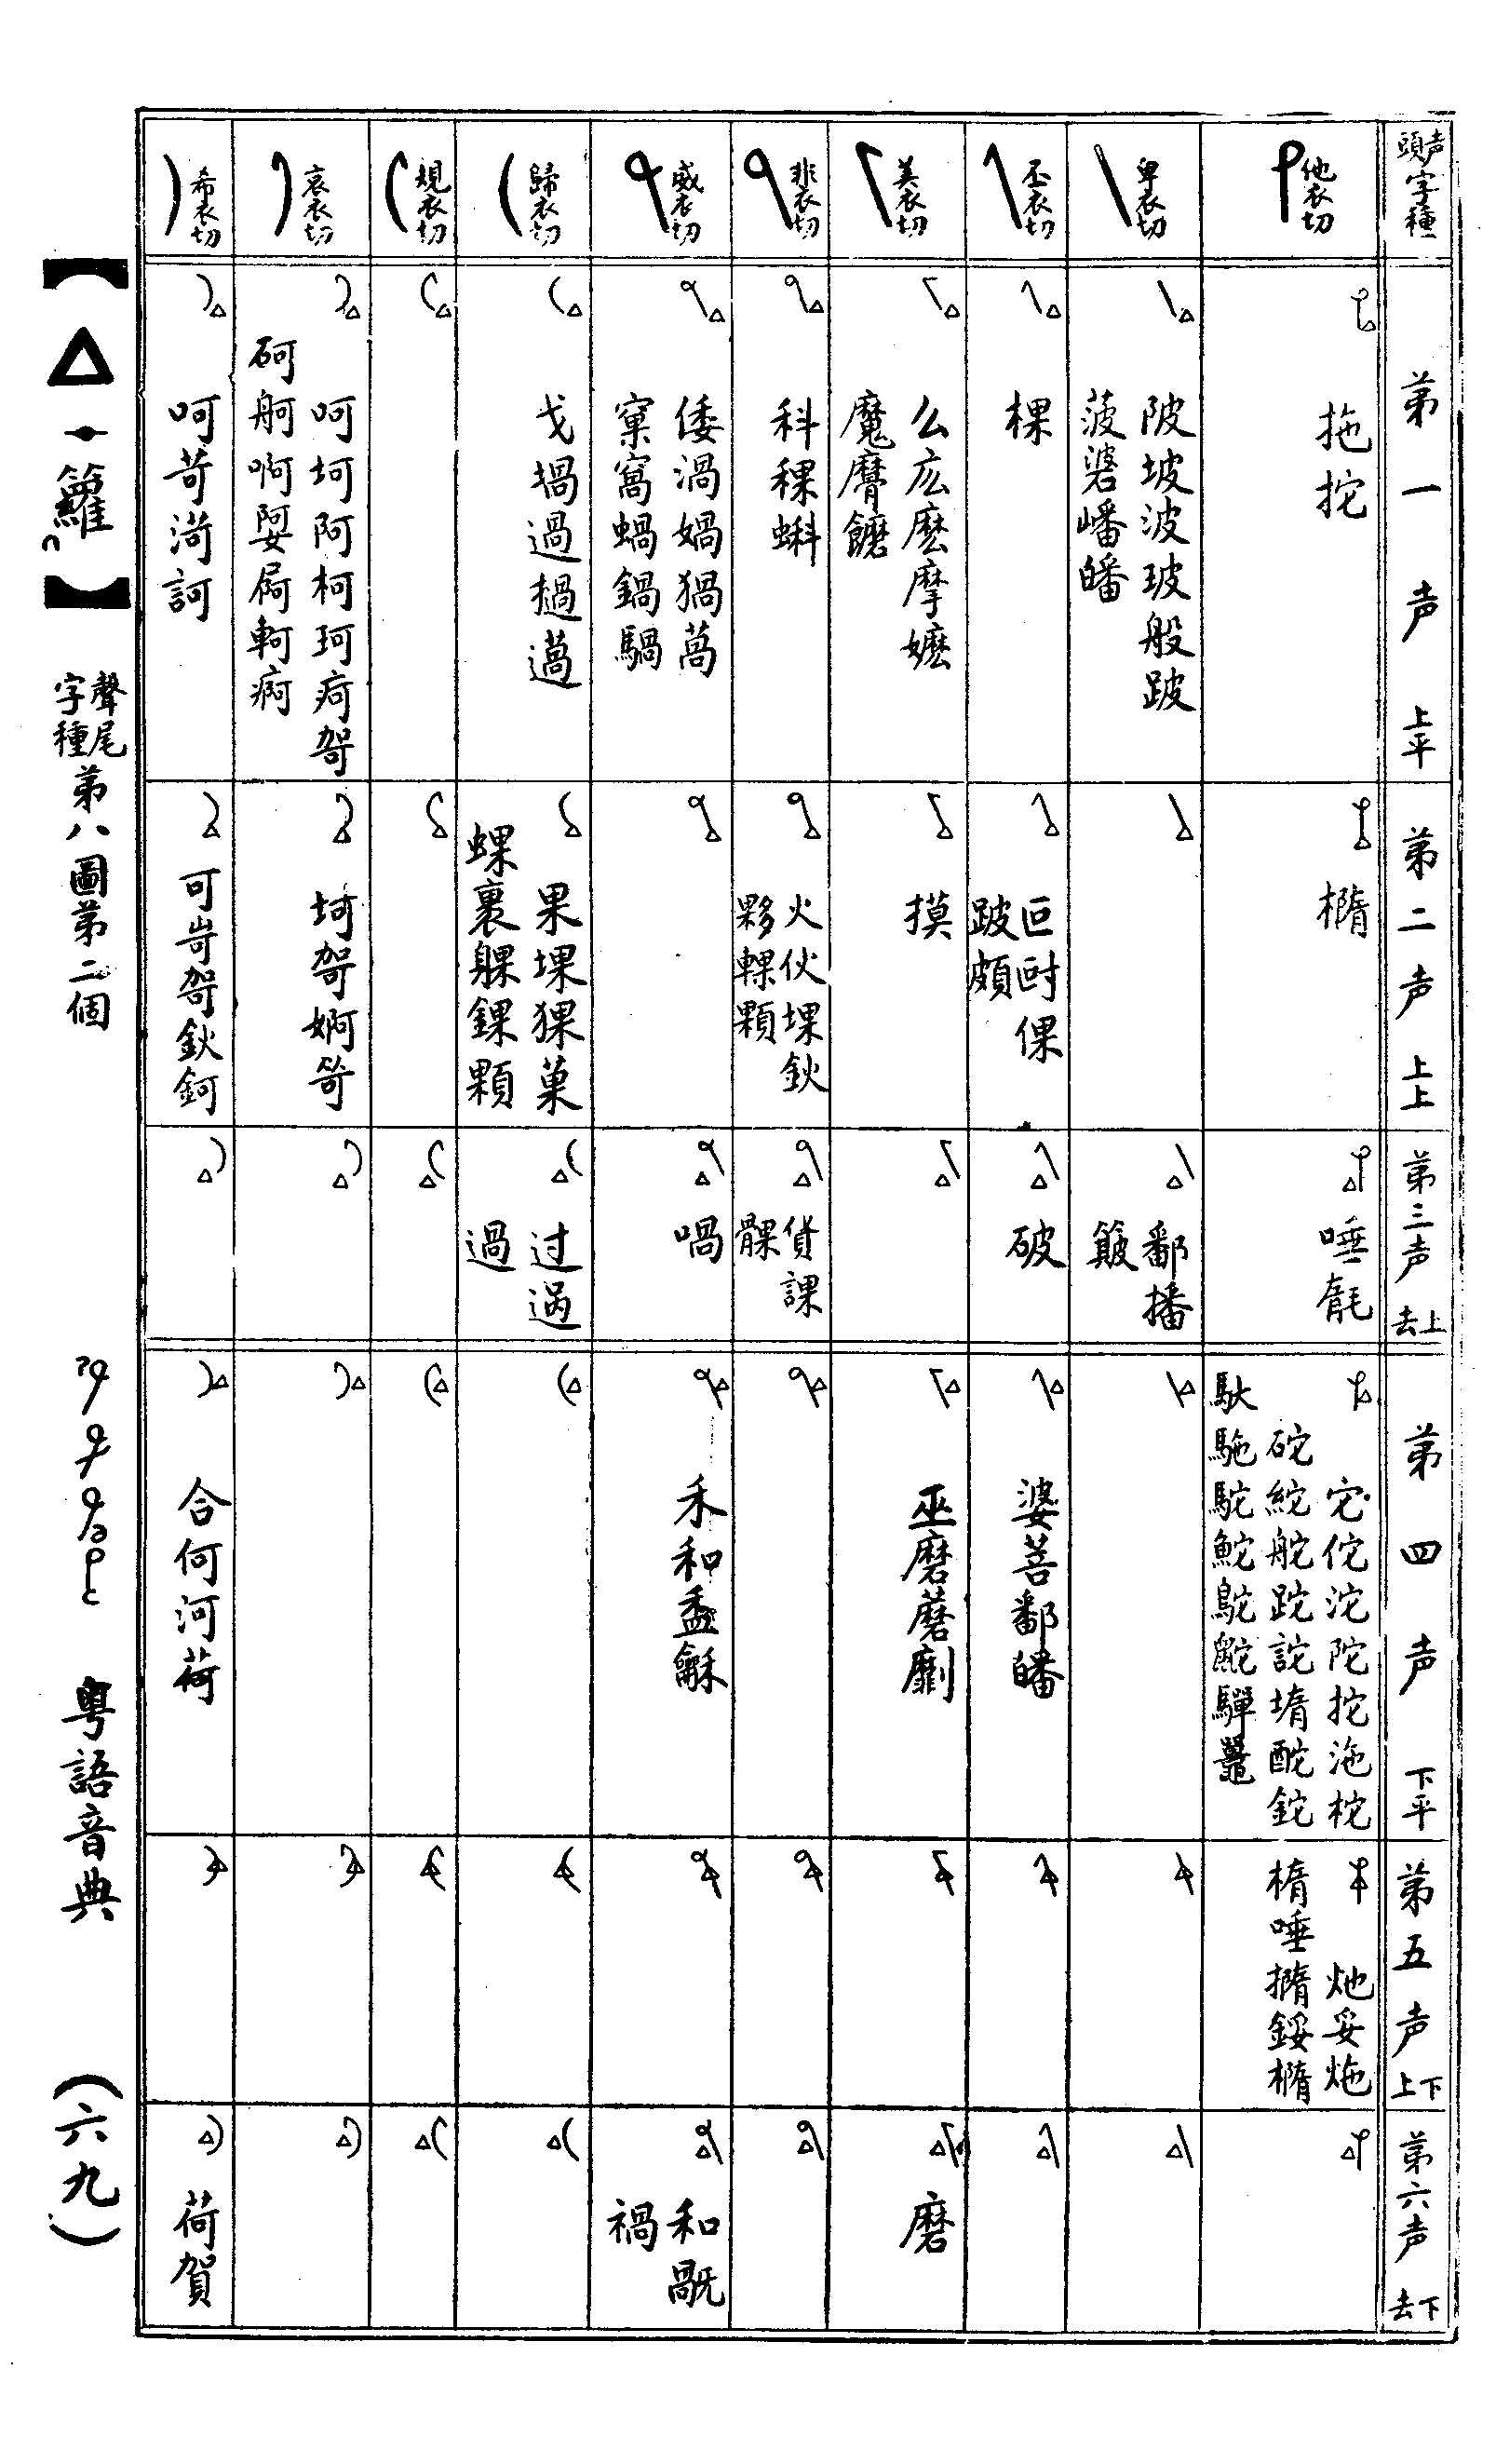 声頭字種
第一声 上平
第二声 上上
第三声 上去
第四声 下平
第五声 下上
第六声 下去
他衣切
拖拕
橢
唾毻
它佗沱陀拕沲柁
砣紽舵跎詑堶酡鉈
馱駞駝鮀鴕鼧驒鼉
灺妥炧
楕唾撱鋖橢
卑衣切
陂坡波玻般跛
菠碆嶓皤
鄱播
簸
丕衣切
棵
叵尀倮
跛頗
破
婆菩鄱皤
美衣切
么庅麽摩嬤
魔麿饝
摸
巫磨蘑劘
磨
非衣切
科稞蝌
火伙堁鈥
夥輠顆
貨課
髁
威衣切
倭渦媧猧萵
窠窩蝸鍋騧
喎
禾和盉龢
和
禍
歸衣切
戈堝過撾薖
果堁猓菓
蜾裹躶錁顆
过
過
規衣切
哀衣切
呵坷阿柯珂疴哿
砢舸啊娿屙軻痾
坷哿婀笴
希衣切
呵苛渮訶
可岢哿鈥鈳
合何河荷
荷賀
【△·籮】
聲尾字種 第八圖第二個
粵語音典
(六九)